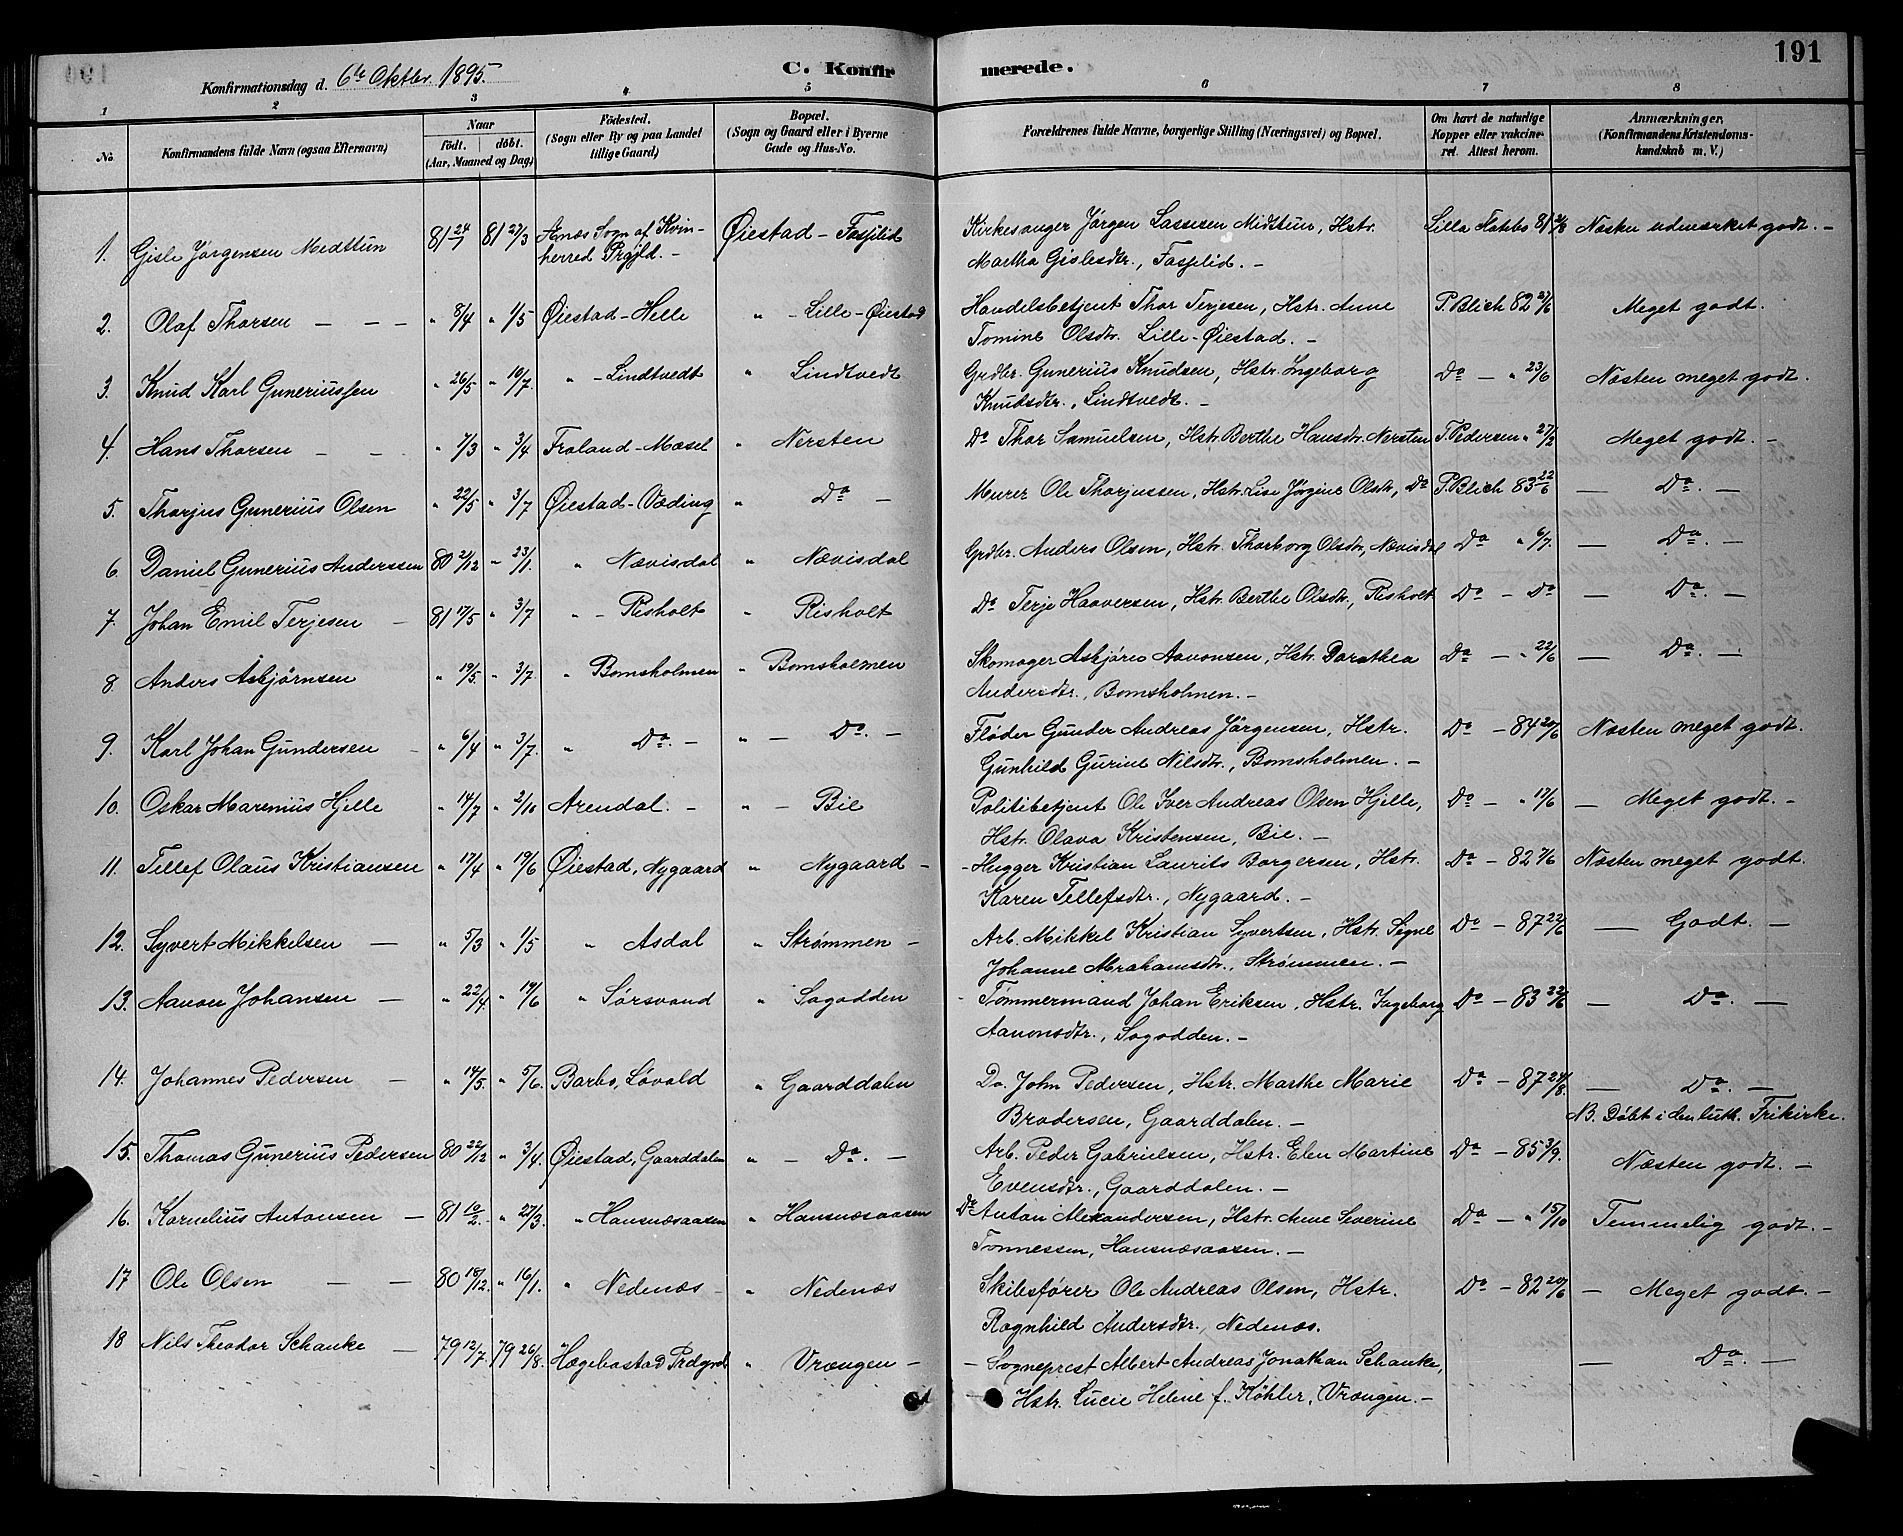 191
Konfirmationsdag d. 6te Oktbr. 1895.
C. Konfir
merede.
1 2 3 4 5 6 7 8
No.
Konfirmandens fulde Navn (ogsaa Efternavn)
Naar
født. døbt.
(Aar, Maaned og Dag)
Fødested.
(Sogn eller By og paa Landet
tillige Gaard)
Bopæl.
(Sogn og Gaard eller i Byerne
Gade og Hus-No.
Forældrenes fulde Navne, borgerlige Stilling (Næringsvei) og Bopæl.
Om havt de naturlige
Kopper eller vakcine-
ret. Attest herom.
Anmærkninger,
(Konfirmandens Kristendoms-
kundskab m. V.)
1. Gisle Jørgensen Medttun 81 24/1 81 27/3 Ænæs Sogn af Kvin- Øiestad - Fasjelid Kirkesanger Jørgen Lassesen Midttun, Hstr. Lilla 81 Næsten udmærket godt. -
herred Prgjld. - Martha Gislesdtr., Fasjelid. -
2. Olaf Thorsen - - - " 8/4 " 1/5 Øiestad - Helle " - Lille-Øiestad Handelsbetjent Thor Terjesen, Hstr. Anne P. Blich 82 27/6 Meget godt.
Tomine Olsdtr. Lille-Øiestad. -
3. Knud Karl Gunerius​sen " 26/5 " 10/7 " - Lindtvedt " Lindtvedt Grdbr. Gunerius Knudsen, Hstr. Ingeborg Do - " 23/6 Næsten meget godt.
Knudsdtr., Lindtvedt. -
4. Hans Thorsen - - " 7/3 " 3/4 Froland - Mæsel " Nersten Do Thor Samuelsen, Hstr. Berthe Hansdtr. Nersten T. Pedersen " 27/2 Meget godt. -
5. Thorjus Gunerius Olsen " 22/5 " 3/7 Øiestad - Væding " Do - Murer Ole Thorjussen, Hstr. Lise Jørgine Olsdtr, Do P. Blich 83 22/6 - Do. -
6. Daniel Gunerius Anderssen 80 21/12 " 23/1. " Nævisdal " Nævisdal Grdbr. Anders Olsen, Hstr. Thorborg Olsdtr, Nævisdal Do " 6/7. - Do. -
7. Johan Emil Terjesen - 81 17/5 " 3/7 " - Risholt " Risholt Do Terje Haaversen, Hstr. Berthe Olsdtr., Risholt Do - Do - Do. -
8. Anders Asbjørnsen " 19/5. " 3/7 " Bomsholmen " Bomsholmen Skomager Asbjørn Aavonsen, Hstr. Dorothea Do - " 22/6 - Do. -
Andersdtr., Bomsholmen. -
9. Karl Johan Gundersen - " 6/4 " 3/7. " Do. - " - Do. - Fløder Gunder Andreas Jørgensen, Hstr. Do - 84 20/6 Næsten meget godt.
Gunhild Gurine Nilsdtr., Bomsholmen. -
10. Oskar Marenius Hjelle " 14/7 " 2/10 Arendal. - " - Bie Politibetjent Ole Iver Andreas Olsen Hjelle, Do - " 17/6 - Meget godt. -
Hstr. Olava Kristensen, Bie. -
11. Tellef Olaus Kristiansen " 17/4 " 19/6 Øiestad, Nygaard " Nygaard - - Hugger Kristian Laurits Borgersen, Hstr. Do - 82 7/6 Næsten meget godt.
Karen Tellefsdtr., Nygaard. -
12. Syvert Mikkelsen - " 5/3 " 1/5 " Asdal " Strømmen - Arb. Mikkel Kristian Syvertsen, Hstr. Signe Do - 87 22/6 - Godt. -
Johanne Abrahamsdtr., Strømmen. -
13. Aavon Johansen - " 22/4. " 19/6 " Sørsvand " Sagodden - Tømmermand Johan Eriksen, Hstr. Ingeborg Do - 83 22/6 - Do. -
Aavonsdtr., Sagodden. -
14. Johannes Pedersen - " 14/5. " 5/6. Barbo, Løvold " Gaarddalen Do. John Pedersen, Hstr. Marthe Marie Do - 87 24/8. - Do. -
Brodersen, Gaarddalen. - NB. Døbt i den luth. Frikirke.
15. Thomas Gunerius Pedersen 80 22/12 " 3/4. Øiestad, Gaarddalen " - Do. - Arb. Peder Gabrielsen, Hstr. Elen Martine Do - 85 3/9. Næsten godt. -
Evensdtr., Gaarddalen. -
16. Kornelius Antonsen - 81 10/2. " 27/3. " Hansnæsaasen " Hansnæsaasen Do Anton Alexandersen, Hstr. Anne Severine Do - " 15/10 Temmelig godt. -
Tønnessen, Hansnæsaasen. -
17 Ole Olsen - - 80 18/12. " 16/1. " Nedenæs - " Nedenæs Skibsfører Ole Andreas Olsen, Hstr. Do - 82 20/6 - Meget godt. -
Ragnhild Andersdtr., Nedenæs.
18 Nils Theodor Schanke - 79 12/7. 79 26/8. Hægebostad Prdgjæld " Vrængen - - Sogneprest Albert Andreas Jonathan Schanke, - Do. -
Hstr. Lucie Helene f. Køhler, Vrængen. -